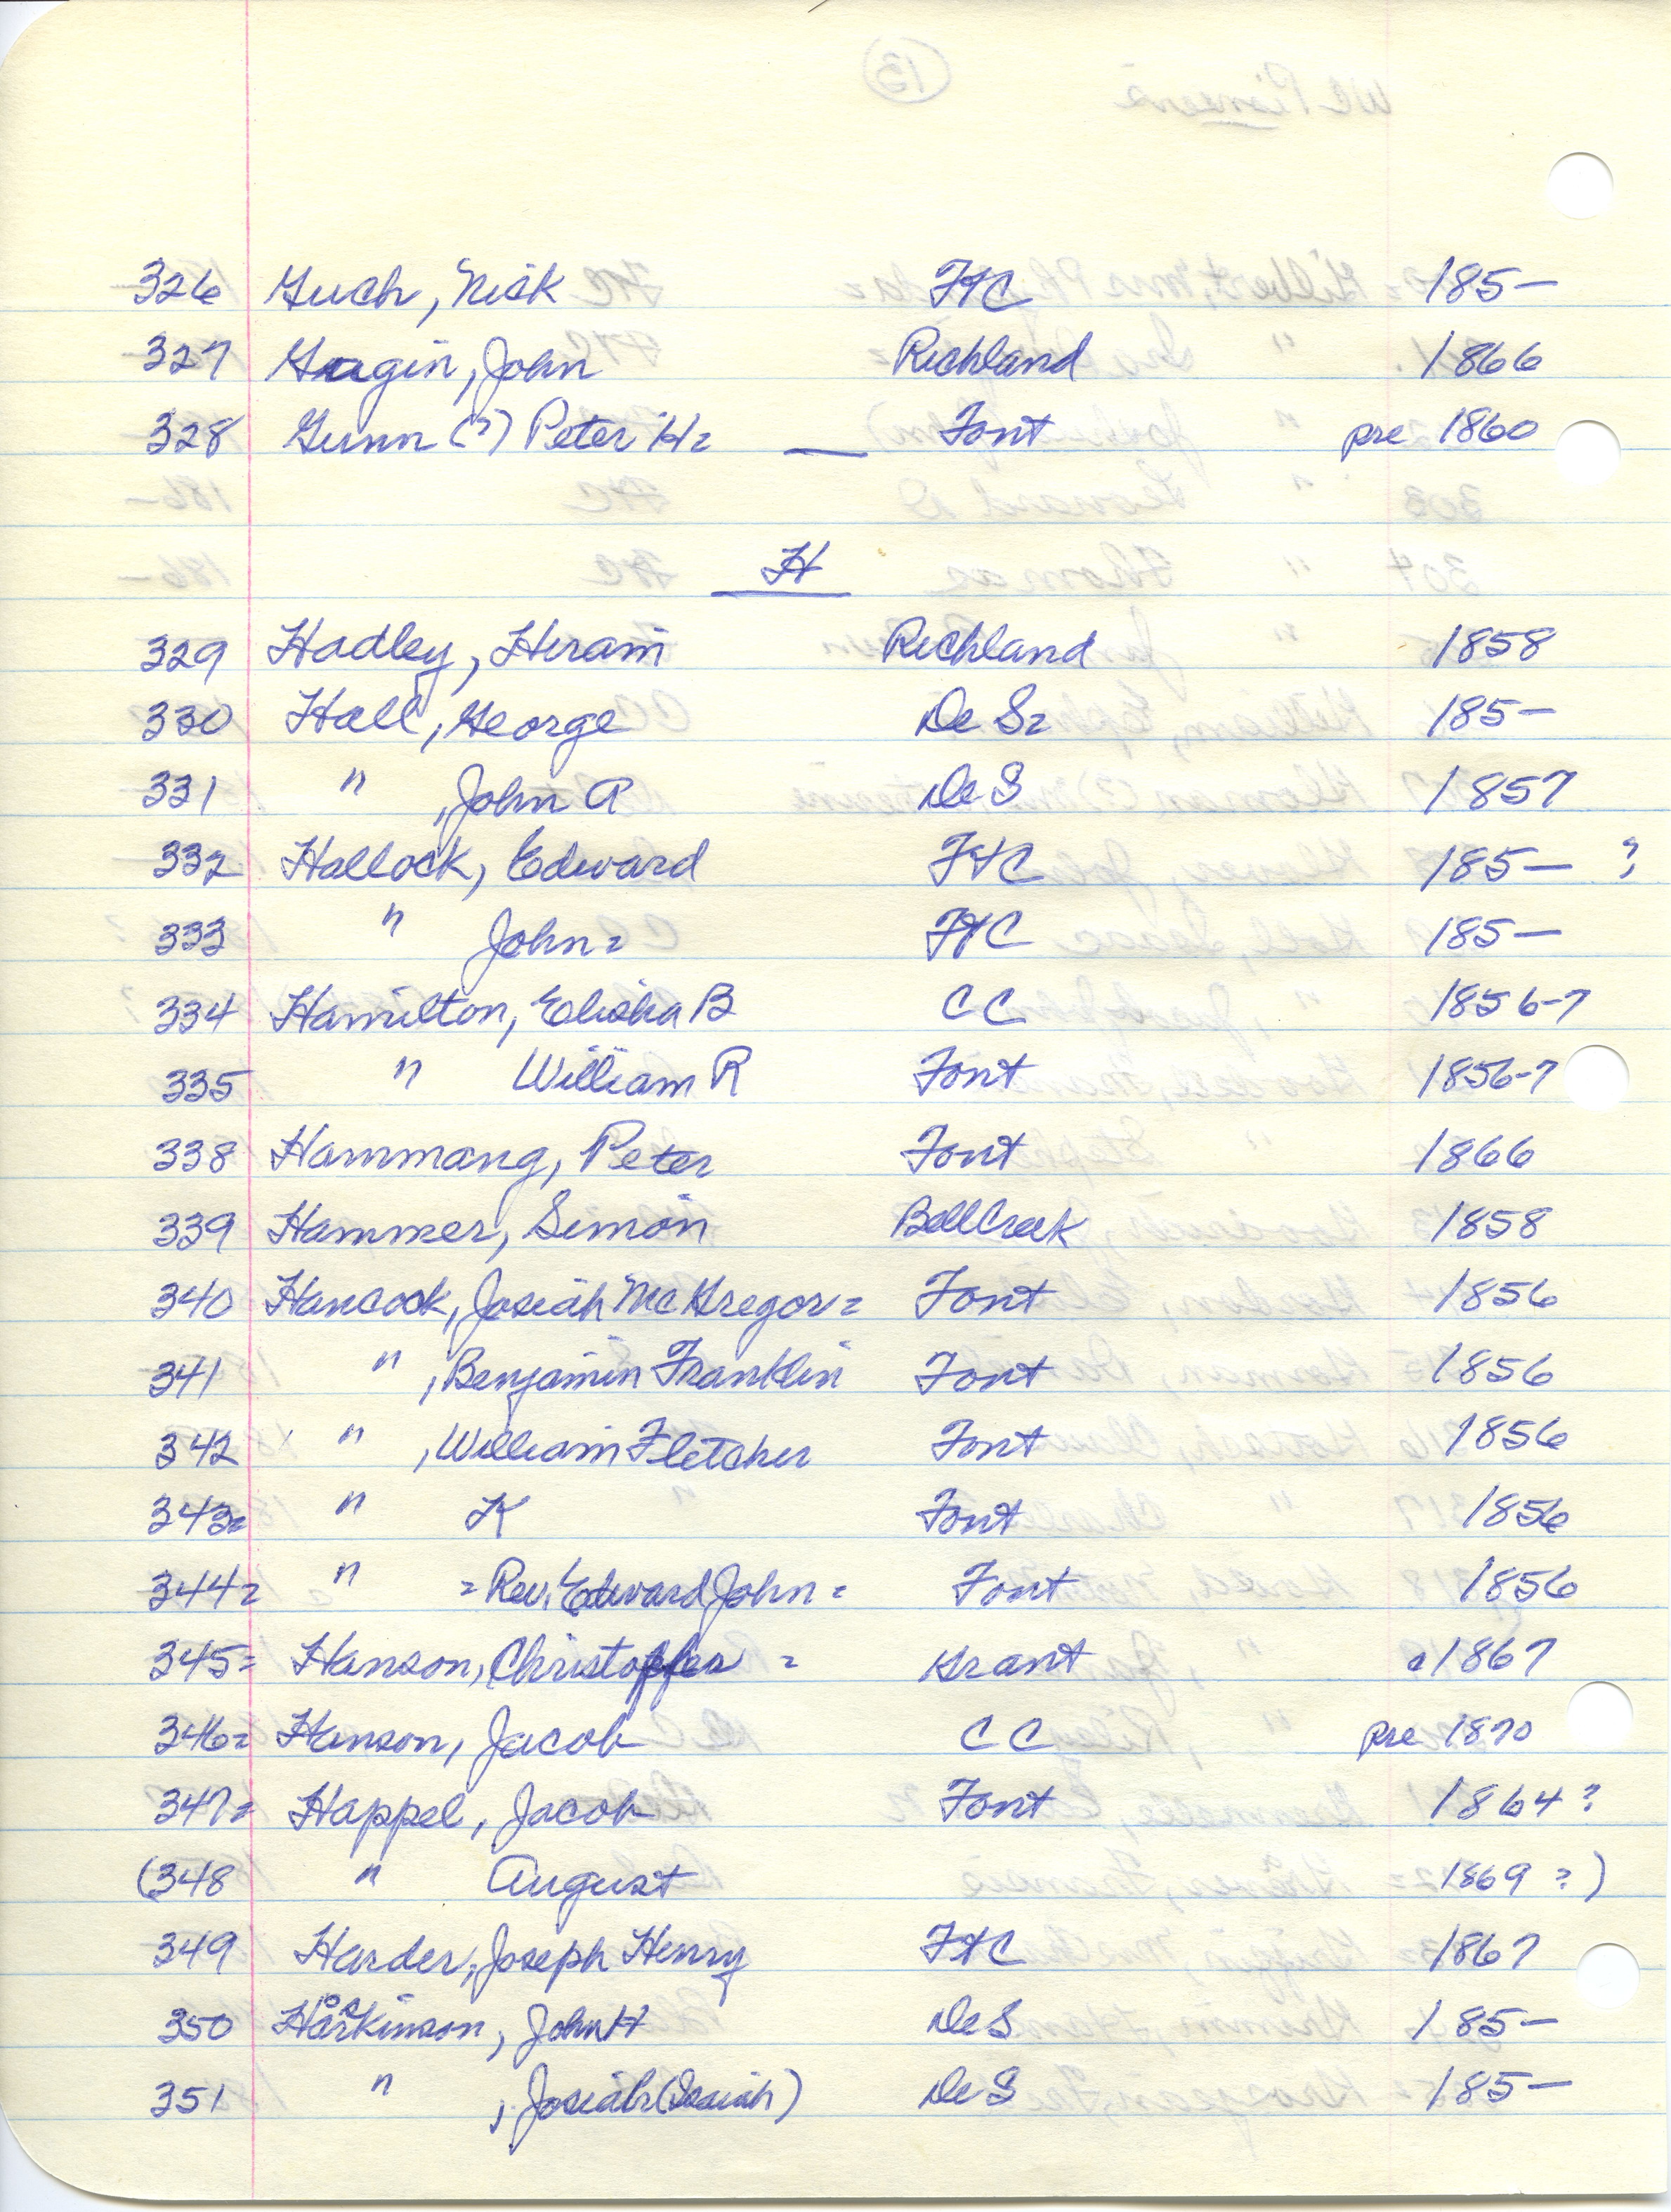 326 Guch, Nick FtC 185—
327 Gugin, John Richland 1866
328 Gunn (?) Peter H= — Font pre 1860
H
329 Hadley, Hiram Richland 1858
330 Hall, George De S= 185—
331 " , John A De S 1857
332 Hallock, Edward FtC 185— ?
333 " John = FtC 185—
334 Hamilton, Elisha B CC 1856-7
335 " William R Font 1856-7
338 Hammang, Peter Font 1866
339 Hammer, Simon Bell Creek 1858
340 Hancock, Josiah McGregor = Font 1856
341 " , Benjamin Franklin Font 1856
342 " , William Fletcher Font 1856
343= " K Font 1856
344= " = Rev. Edward John = Font 1856
345= Hanson, Christopher = Grant 1867
346= Hanson, Jacob CC pre 1870
347= Happel, Jacob Font 1864 ?
(348 " August 1869 ?)
349 Harder, Joseph Henry FtC 1867
350 Harkinson, John H De S 185—
351 " , Josiah (Isaiah) De S 185—